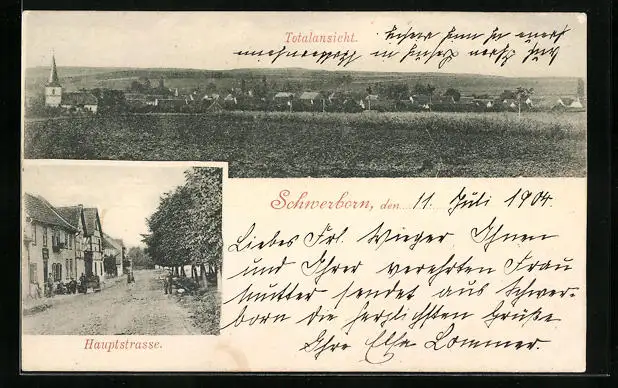 Totalansicht.
Schwerborn, den 11. Juli 1904.
Liebes Frl. Wieger Ihnen
und Ihrer verehrten Frau
Mutter sendet aus Schwer-
born die herzlichsten Grüße
Ihre Elsa Lommer.
Hauptstrasse.